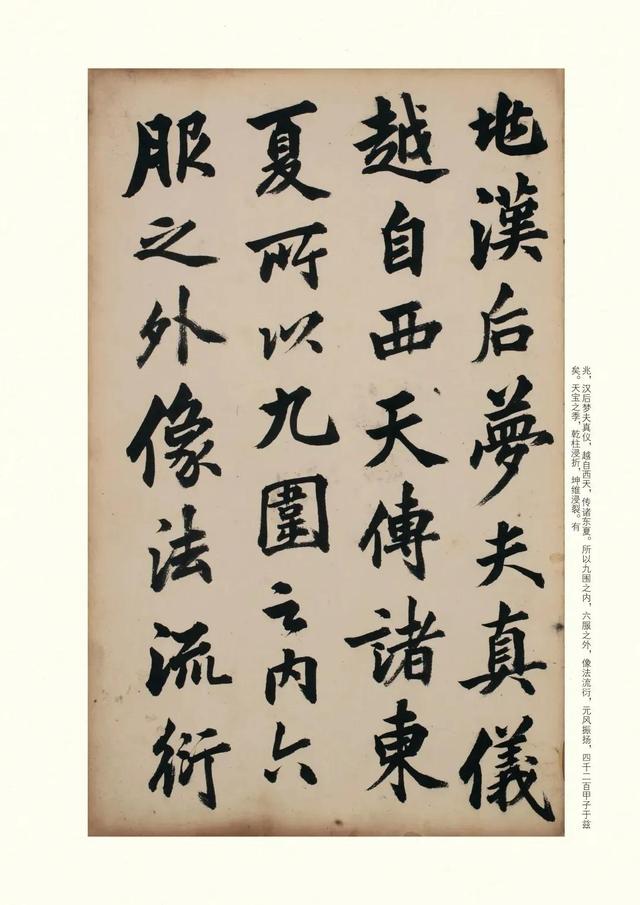 兆漢后夢夫真儀
越自西天傳諸東
夏所以九圍之内六
服之外像法流衍
兆，汉后梦夫真仪，越自西天，传诸东夏。所以九围之内，六服之外，像法流衍，元风振扬，四千二百甲子于兹
矣。天宝之季，乾柱浸折，坤维浸裂。有